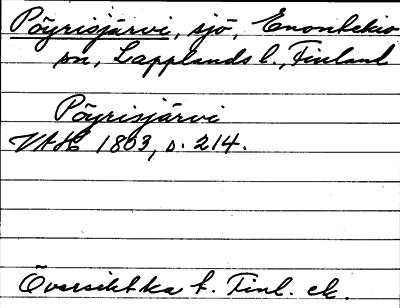 Pöyrisjärvi, sjö, Enontekio
sn, Lapplands l., Finland
Pöyrisjärvi
VAH 1803, s. 214.
Översiktska f. Finl. ek.